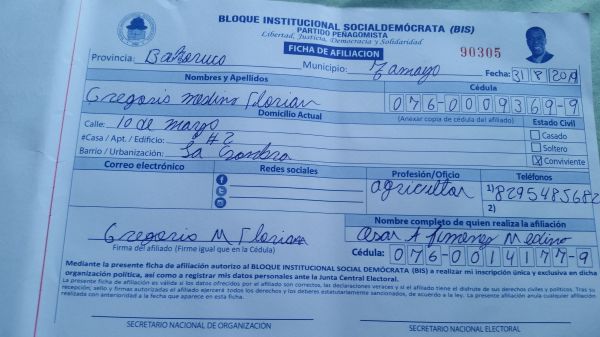 BLOQUE INSTITUCIONAL SOCIALDEMÓCRATA (BIS)
PARTIDO PEÑAGOMISTA
Libertad, Justicia, Democracia y Solidaridad
FICHA DE AFILIACION
90305
Provincia: Bahoruco Municipio: Tamayo Fecha: 31 8 2019
Nombres y Apellidos Cédula
Gregoris medina Florian 076-0009369-9
Domicilio Actual (Anexar copia de cédula del afiliado) Estado Civil
Calle: 10 de marzo Casado
#Casa / Apt. / Edificio: # 2 Soltero
Barrio / Urbanización: La Conviviente
Correo electrónico Redes sociales Profesión/Oficio Teléfonos
agricultor 1) 8295485682
2)
Nombre completo de quien realiza la afiliación
Gregoris M Florian Cesar A Jimenez Medina
Firma del afiliado (Firme igual que en la Cédula) Cédula: 076-0014177-9
Mediante la presente ficha de afiliación autorizo al BLOQUE INSTITUCIONAL SOCIAL DEMÓCRATA (BIS) a realizar mi inscripción única y exclusiva en dicha
organización política, así como a registrar mis datos personales ante la Junta Central Electoral.
La presente ficha de afiliación es válida si los datos ofrecidos por el afiliado son correctos, las declaraciones veraces y si el afiliado tiene el disfrute de sus derechos civiles y políticos. Tras su
recepción, sello y firmas autorizadas el afiliado ejercerá todos los derechos y los deberes estatutariamente sancionados, de acuerdo a la ley. La presente afiliación anula cualquier afiliación
realizada con anterioridad a la fecha que aparece en esta ficha.
SECRETARIO NACIONAL DE ORGANIZACIÓN SECRETARIO NACIONAL ELECTORAL